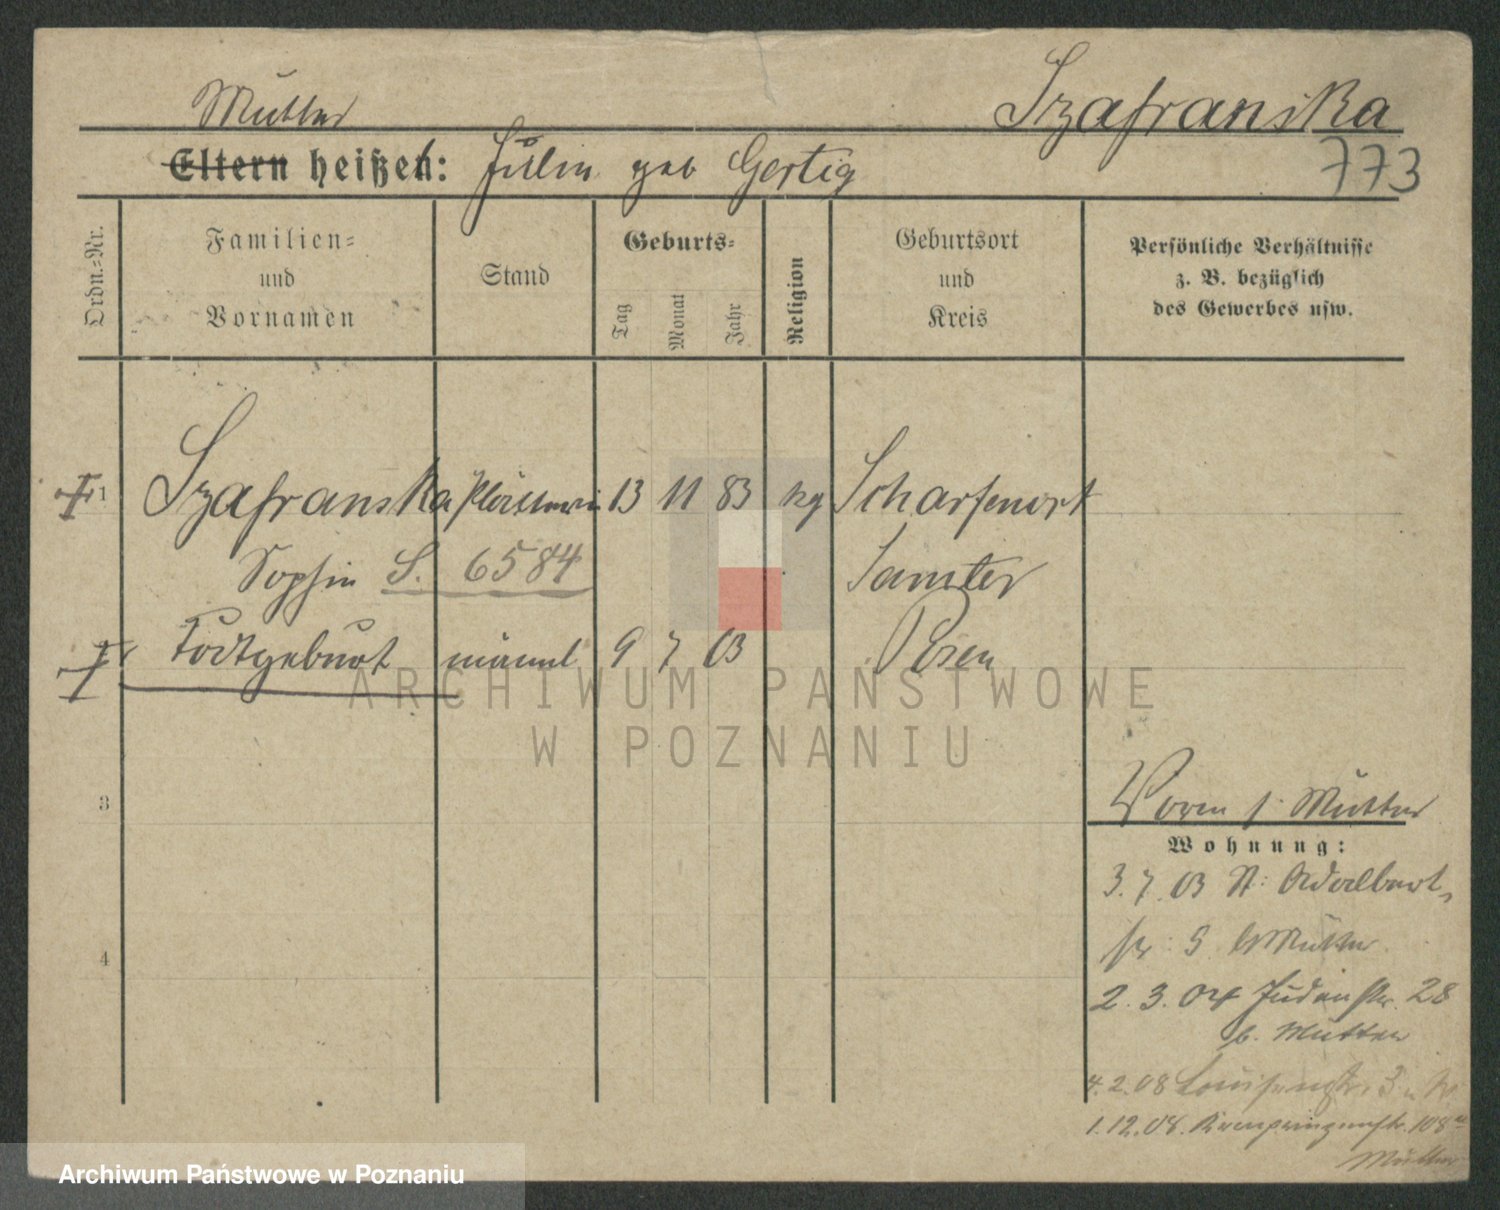 Szafranska
Mutter
773
Eltern heißen: Julie geb Gertig
Ordn.-Nr.
Familien-
und
Vornamen
Stand
Geburts-
Tag
Monat
Jahr
Religion
Geburtsort
und
Kreis
Persönliche Verhältnisse
z. B. bezüglich
des Gewerbes usw.
1 Szafranska Plätterin 13 11 83 kg Scharfenort
Sophie S. 6584 Samter
Todtgeburt männl 9 7 03 Posen
ARCHIWUM PAŃSTWOWE
W POZNANIU
3
Vorm s. Mutter
Wohnung:
3. 7. 03 St: Adalbert-
str: 5 b Mutter
4
2. 3. 04 Judenstr. 28
b. Mutter
4. 2. 08 Louisenstr. 3
1. 12. 08. Kronprinzenstr. 108
Mutter
Archiwum Państwowe w Poznaniu